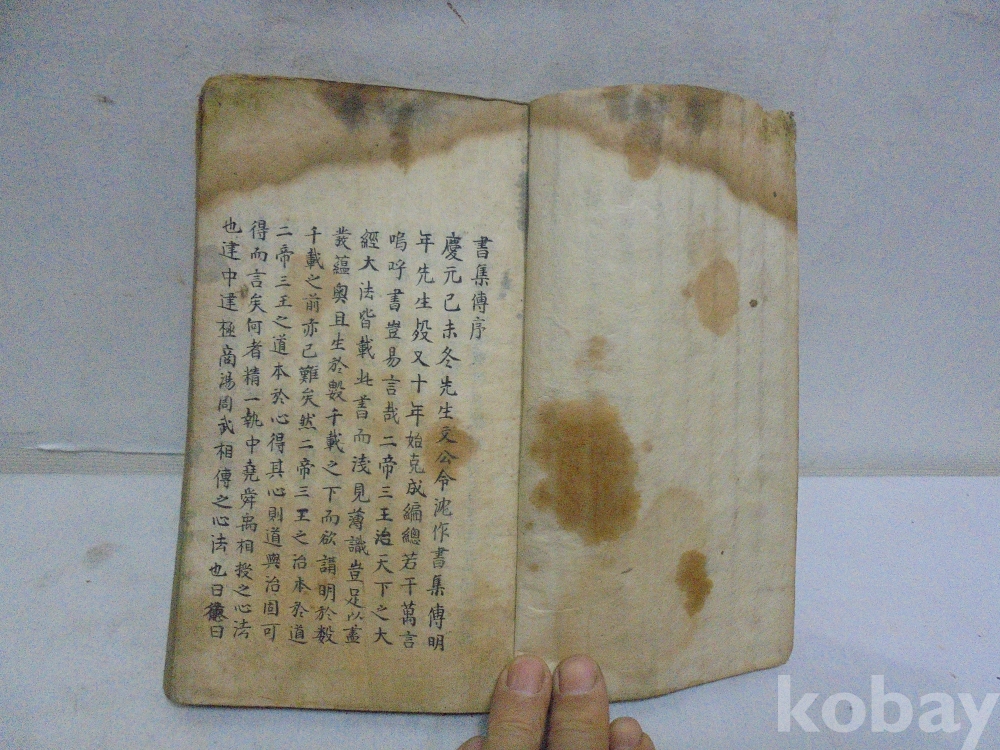 書集傳序
慶元己未冬先生文公令沈作書集傳明
年先生歿又十年始克成編總若干萬言
嗚呼書豈易言哉二帝三王治天下之大
經大法皆載此書而淺見薄識豈足以盡
發蘊奧且生於數千載之下而欲講明於數
千載之前亦已難矣然二帝三王之治本於道
二帝三王之道本於心得其心則道與治固可
得而言矣何者精一執中堯舜禹相授之心法
也建中建極商湯周武相傳之心法也曰德曰
kobay